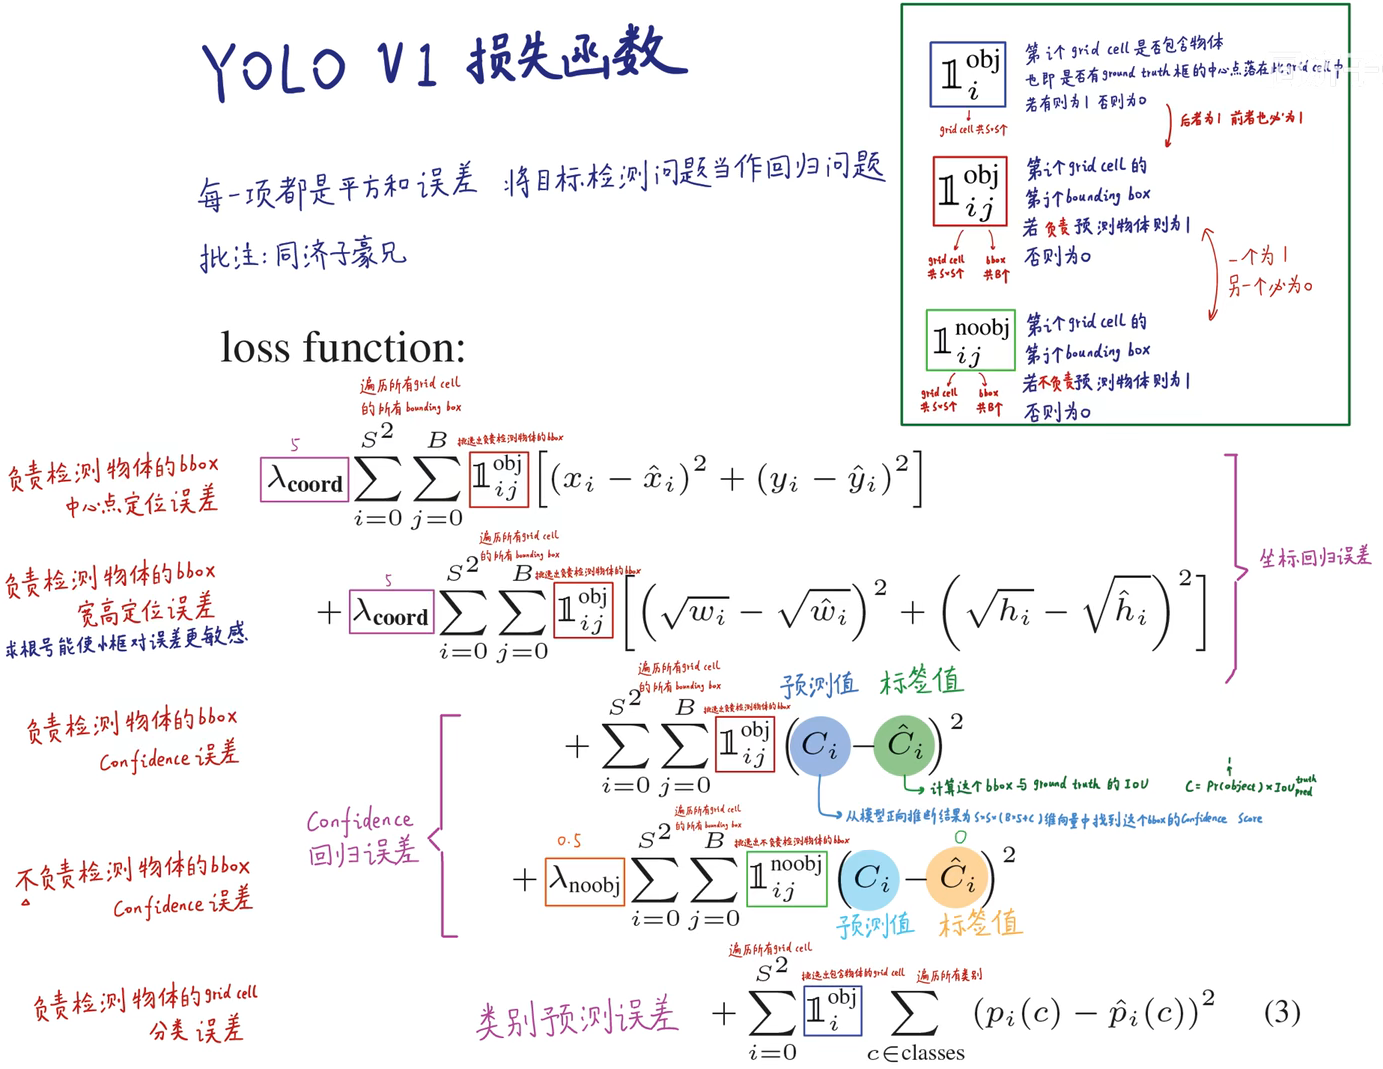 YOLO V1 损失函数
每一项都是平方和误差 将目标检测问题当作回归问题
批注:同济子豪兄
𝟙_i^obj
grid cell共S*S个
第i个grid cell是否包含物体
也即是否有ground truth框的中心点落在此grid cell中
若有则为1 否则为0
后者为1 前者也必为1
𝟙_ij^obj
grid cell 共S*S个
bbox 共B个
第i个grid cell的
第j个bounding box
若负责预测物体则为1
否则为0
一个为1
另一个必为0
𝟙_ij^noobj
grid cell 共S*S个
bbox 共B个
第i个grid cell的
第j个bounding box
若不负责预测物体则为1
否则为0
loss function:
遍历所有grid cell
的所有bounding box
挑选出负责检测物体的bbox
5
负责检测物体的bbox
中心点定位误差
λ_coord ∑_{i=0}^{S^2} ∑_{j=0}^{B} 𝟙_ij^obj [(x_i − x̂_i)^2 + (y_i − ŷ_i)^2]
遍历所有grid cell
的所有bounding box
挑选出负责检测物体的bbox
坐标回归误差
5
负责检测物体的bbox
宽高定位误差
求根号能使小框对误差更敏感
+ λ_coord ∑_{i=0}^{S^2} ∑_{j=0}^{B} 𝟙_ij^obj [(√w_i − √ŵ_i)^2 + (√h_i − √ĥ_i)^2]
遍历所有grid cell
的所有bounding box
预测值 标签值
挑选出负责检测物体的bbox
负责检测物体的bbox
Confidence误差
+ ∑_{i=0}^{S^2} ∑_{j=0}^{B} 𝟙_ij^obj (C_i − Ĉ_i)^2
计算这个bbox与ground truth的IOU
1
C = Pr(object) × IOU_pred^truth
从模型正向推断结果为S*S*(B*5+C)维向量中找到这个bbox的Confidence Score
Confidence
回归误差
遍历所有grid cell
的所有bounding box
挑选出不负责检测物体的bbox
0.5
0
不负责检测物体的bbox
Confidence误差
+ λ_noobj ∑_{i=0}^{S^2} ∑_{j=0}^{B} 𝟙_ij^noobj (C_i − Ĉ_i)^2
预测值 标签值
遍历所有grid cell
挑选出包含物体的grid cell
遍历所有类别
负责检测物体的grid cell
分类误差
类别预测误差
+ ∑_{i=0}^{S^2} 𝟙_i^obj ∑_{c∈classes} (p_i(c) − p̂_i(c))^2 (3)